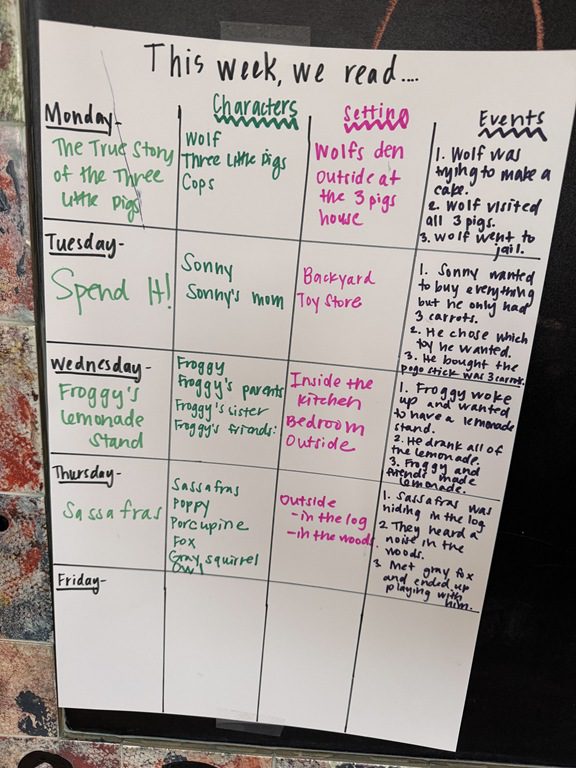 This week, we read....
Characters
Setting
Events
Monday-
The True Story
of the Three
Little Pigs
Wolf
Three Little Pigs
Cops
Wolfs den
Outside at
the 3 pigs
house
1. Wolf was
trying to make a
cake.
2. Wolf visited
all 3 pigs.
3. Wolf went to
jail.
Tuesday-
Spend It!
Sonny
Sonny's mom
Backyard
Toy Store
1. Sonny wanted
to buy everything
but he only had
3 carrots.
2. He chose which
toy he wanted.
3. He bought the
pogo stick was 3 carrots.
Wednesday-
Froggy's
Lemonade
Stand
Froggy
Froggy's parents
Froggy's sister
Froggy's friends:
Inside the
kitchen
Bedroom
Outside
1. Froggy woke
up and wanted
to have a lemonade
stand.
2. He drank all of
the lemonade
3. Froggy and
friends made
lemonade.
Thursday-
Sassafras
Sassafras
Poppy
Porcupine
Fox
Gray squirrel
Owl
Outside
-in the log
-in the woods
1. Sassafras was
hiding in the log
2 They heard a
noise in the
woods.
3 Met gray fox
and ended up
playing with
him.
Friday-